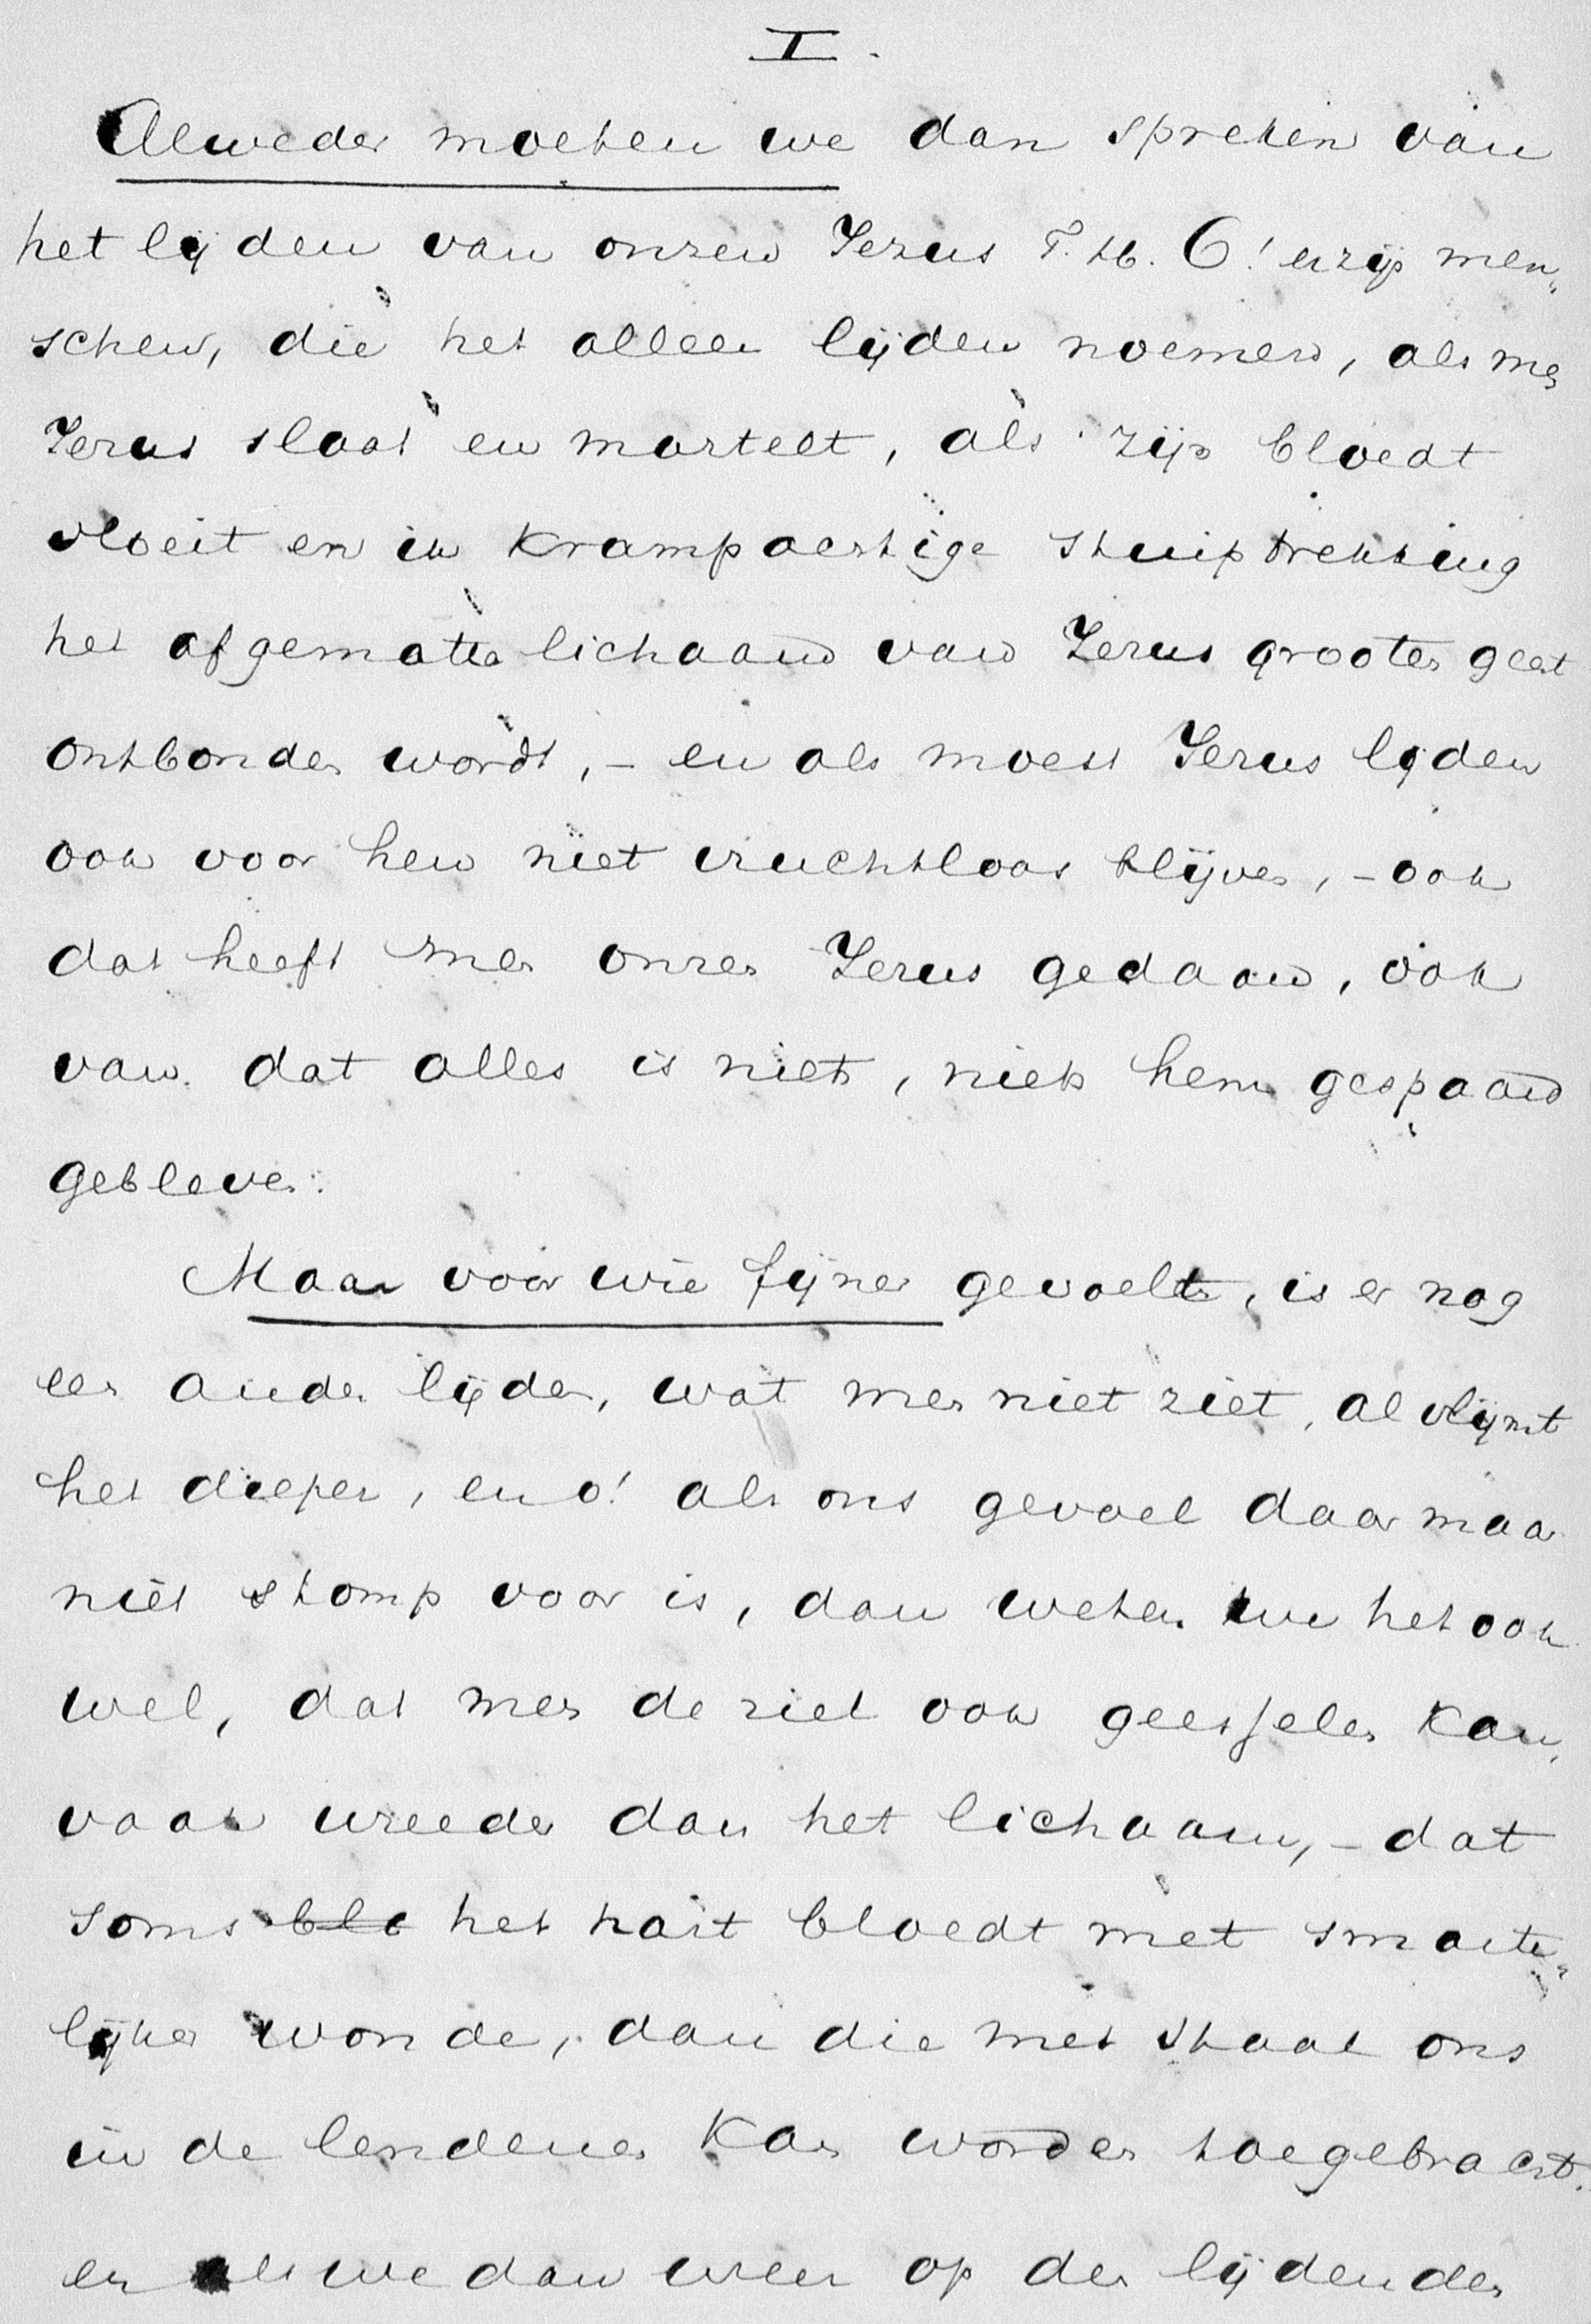 I.
Alweder moeten we dan spreken van
het lijden van onzen Jezus T. H. O! er zijn men„
schen, die het alleen lijden noemen, als men
Jezus slaat en martelt, als zijn bloedt
vloeit en in krampachtige stuiptrekking
het afgematte lichaam van Jezus grooten geest
ontbonden wordt, – en als moest Jezus lijden
ook voor hen niet vruchtloos blijven, – ook
dat heeft men onzen Jezus gedaan, ook
van dat alles is niets, niets hem gespaard
gebleven.
Maar voor wie fijner gevoelt, is er nog
een ander lijden, wat men niet ziet, al vlijmt
het dieper, en o! als ons gevoel daar maar
niet stomp voor is, dan weten we het ook
wel, dat men de ziel ook geesselen kan,
vaak wreeder dan het lichaam, – dat
soms blo het hart bloedt met smarte„
lijker wonde, dan die met staal ons
in de lendenen kan worden toegebracht.
en als we dan weer op den lijdenden